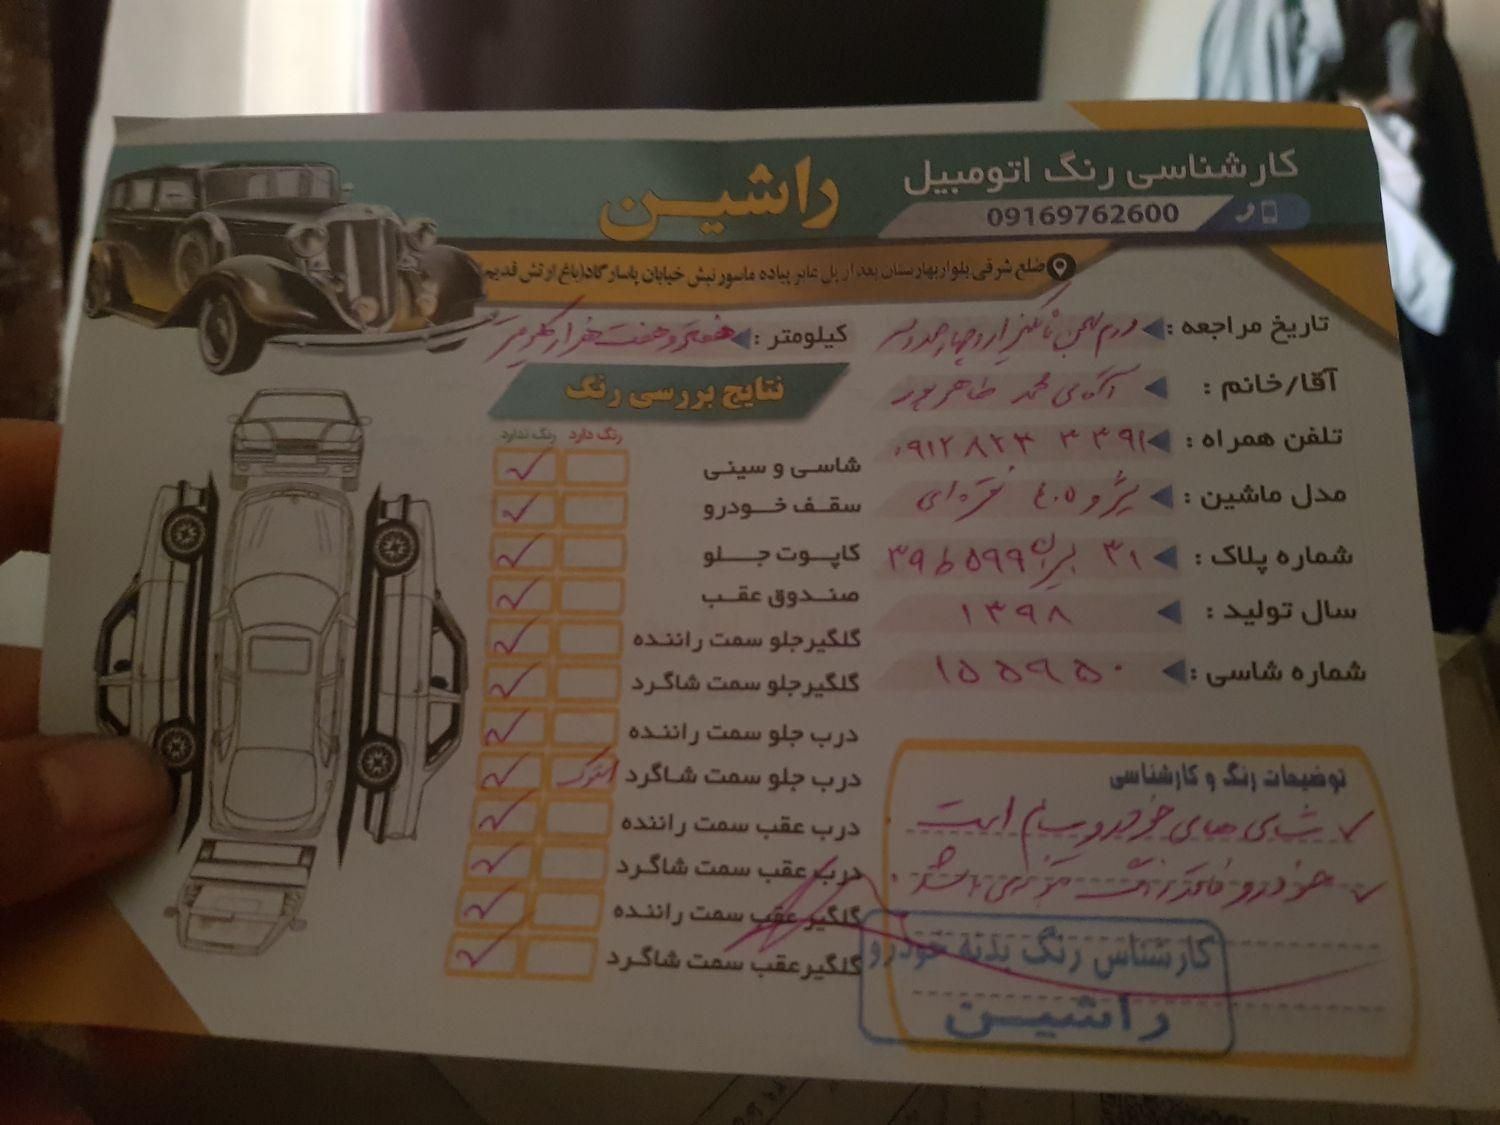 کارشناسی رنگ اتومبیل
راشین
09169762600
ضلع شرقی بلوار بهارستان بعد از پل عابر پیاده ماسور نبش خیابان پاسارگاد(باغ ارتش قدیم)
تاریخ مراجعه :
کیلومتر : هفتاد و هفت هزار کیلومتر
آقا/خانم : آقای محمد طاهرپور
تلفن همراه : ۰۹۱۲۸۲۳۳۳۹۱
مدل ماشین : پژو ۴۰۵ نقره‌ای
شماره پلاک : ۳۱ ایران ۵۹۹ ط ۳۹
سال تولید : ۱۳۹۸
شماره شاسی : ۱۵۵۹۵۰
نتایج بررسی رنگ
رنگ دارد رنگ ندارد
شاسی و سینی ✓
سقف خودرو ✓
کاپوت جلو ✓
صندوق عقب ✓
گلگیر جلو سمت راننده ✓
گلگیر جلو سمت شاگرد ✓
درب جلو سمت راننده ✓
درب جلو سمت شاگرد ✓
درب عقب سمت راننده ✓
درب عقب سمت شاگرد ✓
گلگیر عقب سمت راننده ✓
گلگیر عقب سمت شاگرد ✓
توضیحات رنگ و کارشناسی
✓ شاسی های خودرو سالم است
✓ خودرو فاقد رنگ می باشد.
کارشناس رنگ بدنه خودرو
راشین